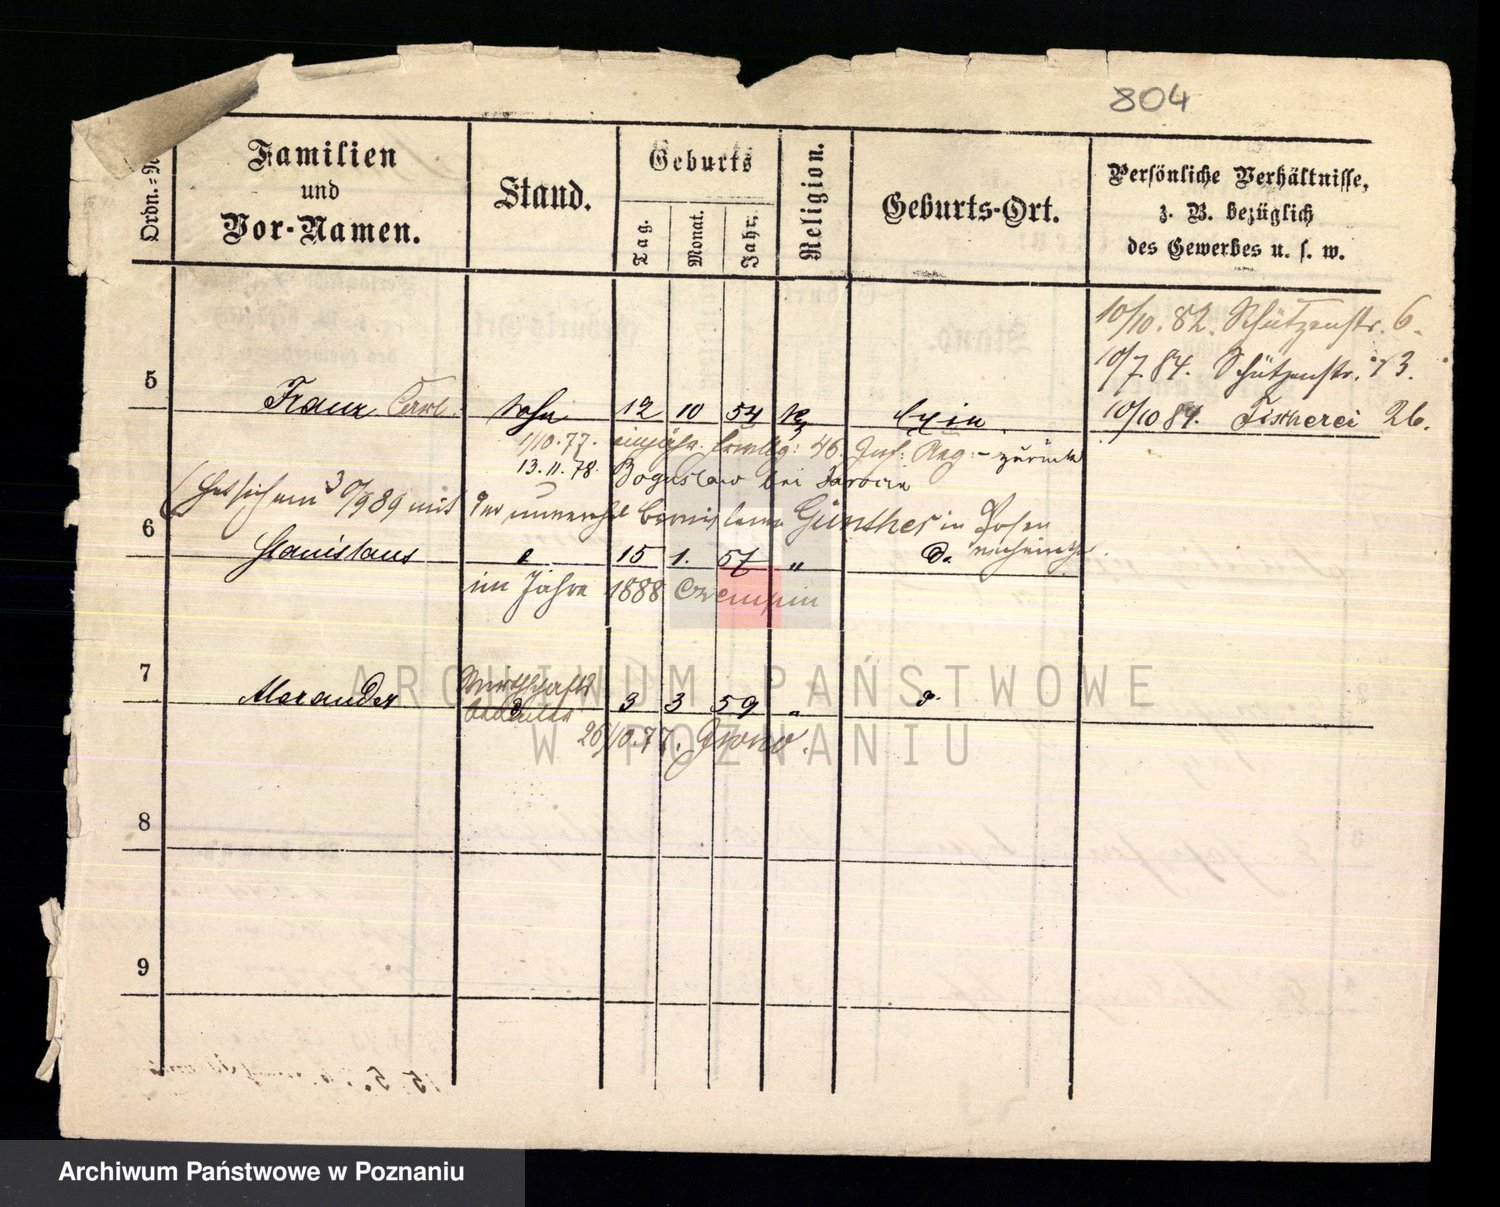 804
Ordn.-N
Familien
und
Vor-Namen.
Stand.
Geburts
Tag.
Monat.
Jahr.
Religion.
Geburts-Ort.
Persönliche Verhältnisse,
z. B. bezüglich
des Gewerbes u. s. w.
10/10. 82. Schützenstr. 6.
10/7. 84. Schützenstr. 13.
10/10 84. Fischerei 26.
5 Franz Carl Sohn 12 10 54 Exin
1/10.77. 46. Inf: Reg: - zurück
13.11.78. Boguslaw bei
mit der Günther in Posen
6 Stanislaus 15 1. 57 " do
im Jahre 1888 Czempin
7 Alexander Wirthschafts 3 3 59 "
26/10.77.
8
9
ARCHIWUM PAŃSTWOWE
W POZNANIU
Archiwum Państwowe w Poznaniu